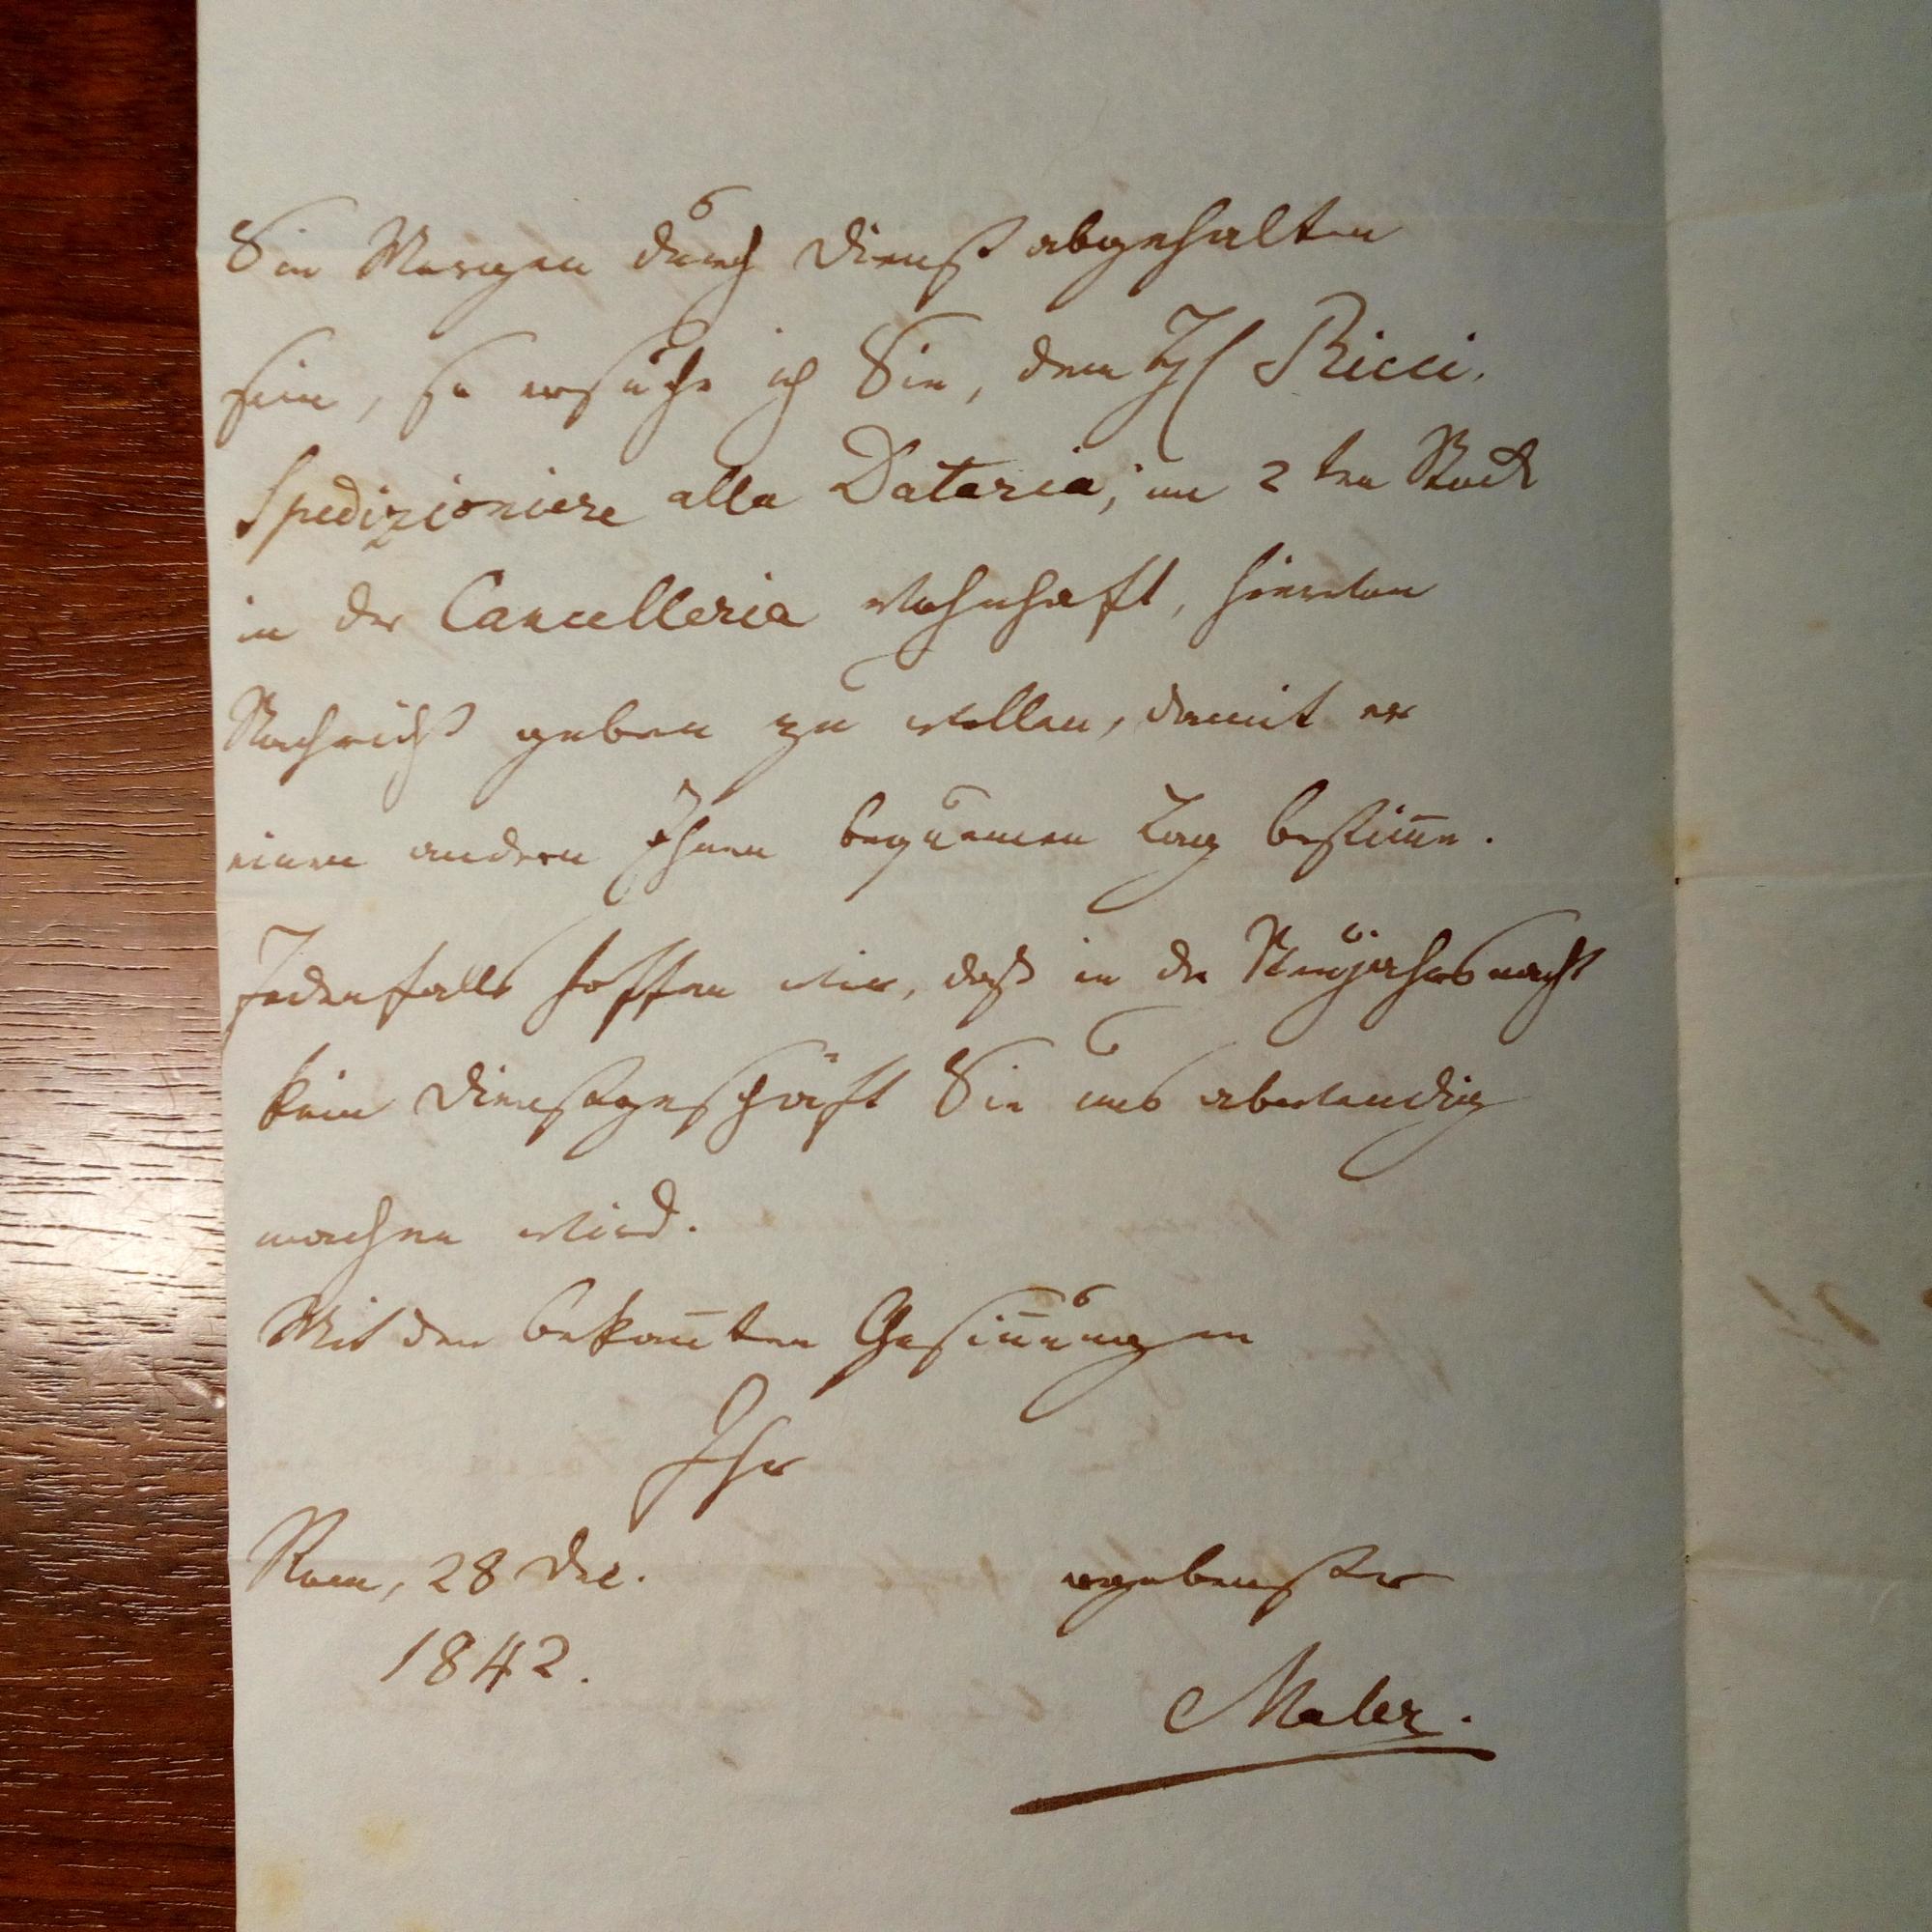 Sie Morgen durch Dienst abgehalten
sein, so ersuche ich Sie, dem H Ricci,
Spedizioniere alla Dataria, im 2ten Stock
in der Cancelleria wohnhaft, hievon
Nachricht geben zu wollen, damit er
einen andern Ihnen bequemen Tag bestim̅e.
Jedenfalls hoffen wir, daß in der Neujahrsnacht
kein Dienstgeschäft Sie uns abwendig
machen wird.
Mit den bekan̅ten Gesin̅ungen
Ihr
Rom, 28 Dec.
1842.
ergebenster
Maler.